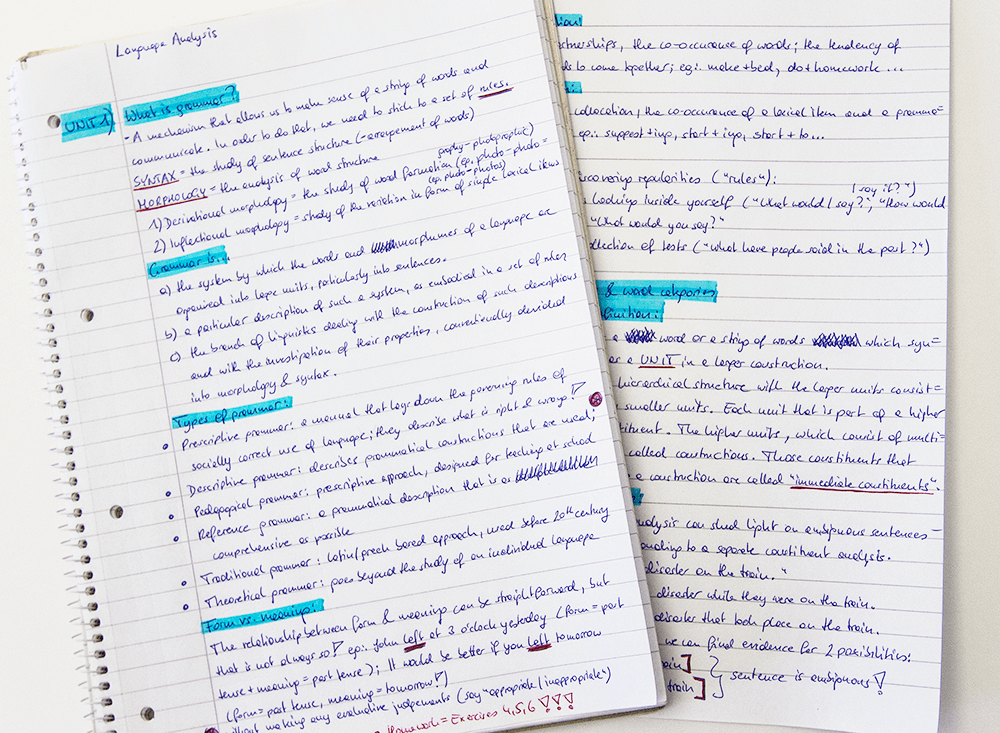 Language Analysis
UNIT 1) What is grammar?
- A mechanism that allows us to make sense of a string of words and
communicate. In order to do that, we need to stick to a set of rules.
SYNTAX = the study of sentence structure (- arrangement of words)
MORPHOLOGY = the analysis of word structure
graphy - photographic)
1) Derivational morphology = the study of word formation (eg. photo - photo =
(eg. photo - photos)
2) Inflectional morphology = study of the variation in form of single lexical items
Grammar is...
a) the system by which the words and morphemes of a language are
organized into larger units, particularly into sentences.
b) a particular description of such a system, as embodied in a set of rules
c) the branch of linguistics dealing with the construction of such descriptions
and with the investigation of their properties, conventionally divided
into morphology & syntax.
Types of grammar:
Prescriptive grammar: a manual that lays down the governing rules of
socially correct use of language; they describe what is right & wrong!
Descriptive grammar: describes grammatical constructions that are used;
Pedagogical grammar: prescriptive approach, designed for teaching at school
Reference grammar: a grammatical description that is as
comprehensive as possible
Traditional grammar: latin/greek based approach, used before 20th century
Theoretical grammar: goes beyond the study of an individual language
Form vs. meaning:
The relationship between form & meaning can be straightforward, but
that is not always so! eg.: John left at 3 o'clock yesterday (form = past
tense + meaning = past tense); It would be better if you left tomorrow
(form = past tense, meaning = tomorrow!)
without making any evaluative judgements (say "appropriate / inappropriate")
Homework = Exercises 4, 5, 6 !!!
tion:
rtnerships, the co-occurance of words; the tendency of
ds to come together; eg.: make + bed, do + homework ...
collocation, the co-occurance of a lexical item and a gramma=
eg.: suggest + ing, start + ing, start + to...
scovering regularities ("rules"):
I say it?")
Looking inside yourself ("What would I say?", "How would
"What would you say?"
ollection of texts ("What have people said in the past?")
& word categories
finition:
a word or a string of words which syn=
as a UNIT in a larger construction.
hierarchical structure with the larger units consist=
smaller units. Each unit that is part of a higher
tituent. The higher units, which consist of multi=
called constructions. Those constituents that
a construction are called "immediate constituents".
:
nalysis can shed light on ambiguous sentences -
onding to a separate constituent analysis.
disaster on the train."
disaster while they were on the train.
disaster that took place on the train.
we can find evidence for 2 possibilities:
rain]
train] } sentence is ambiguous!